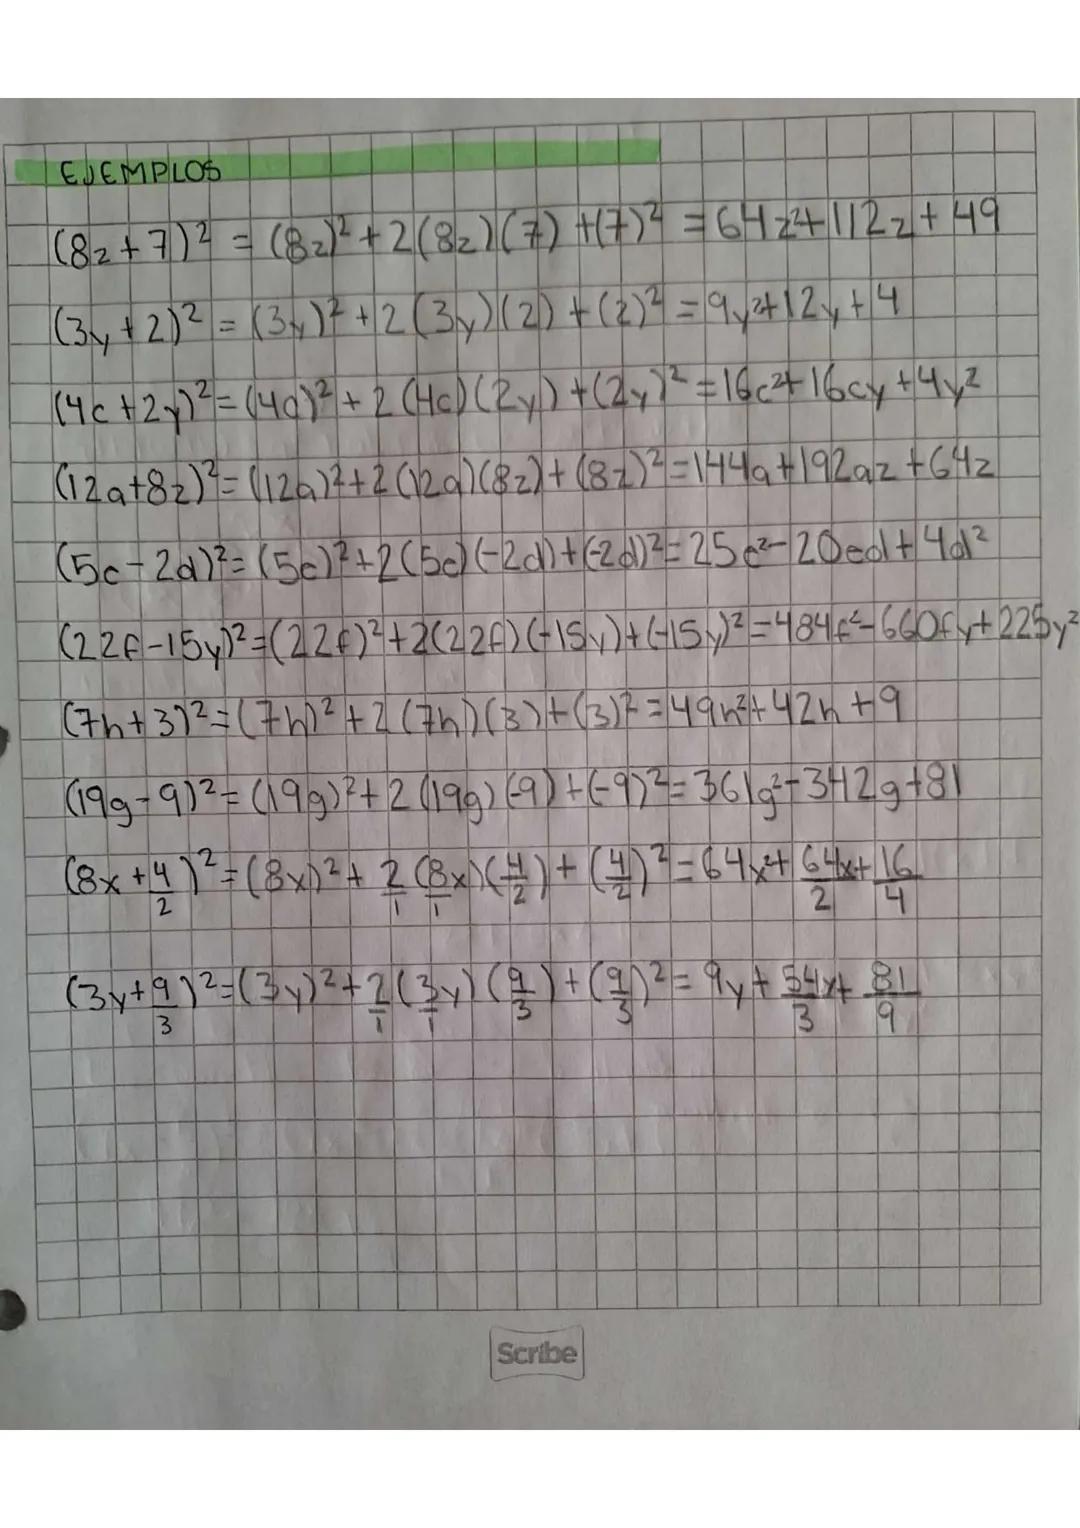 EJEMPLOS
(8z+7)² = (8z)² + 2(8z)(7) + (7)² = 64z²+112z+49
(3y+2)² = (3y)² + 2(3y)(2) + (2)² = 9y²+12y+4
(4c+2y)² = (4c)² + 2(4c)(2y) + (2y)² = 16c²+16cy+4y²
(12a+8z)² = (12a)²+2(12a)(8z)+(8z)² = 144a+192az+64z
(5c-2d)² = (5c)²+2(5c)(-2d)+(-2d)² = 25c²-20cd+4d²
(22f-15y)² = (22f)²+2(22f)(-15y)+(-15y)² = 484f²-660fy+225y²
(7h+3)² = (7h)²+2(7h)(3)+(3)² = 49h²+42h+9
(19g-9)² = (19g)²+2(19g)(-9)+(-9)² = 361g²-342g+81
(8x+4/2)² = (8x)²+2/1(8x/1)(4/2)+(4/2)² = 64x²+64x/2+16/4
(3y+9/3)² = (3y)²+2/1(3y/1)(9/3)+(9/3)² = 9y+54y/3+81/9
Scribe